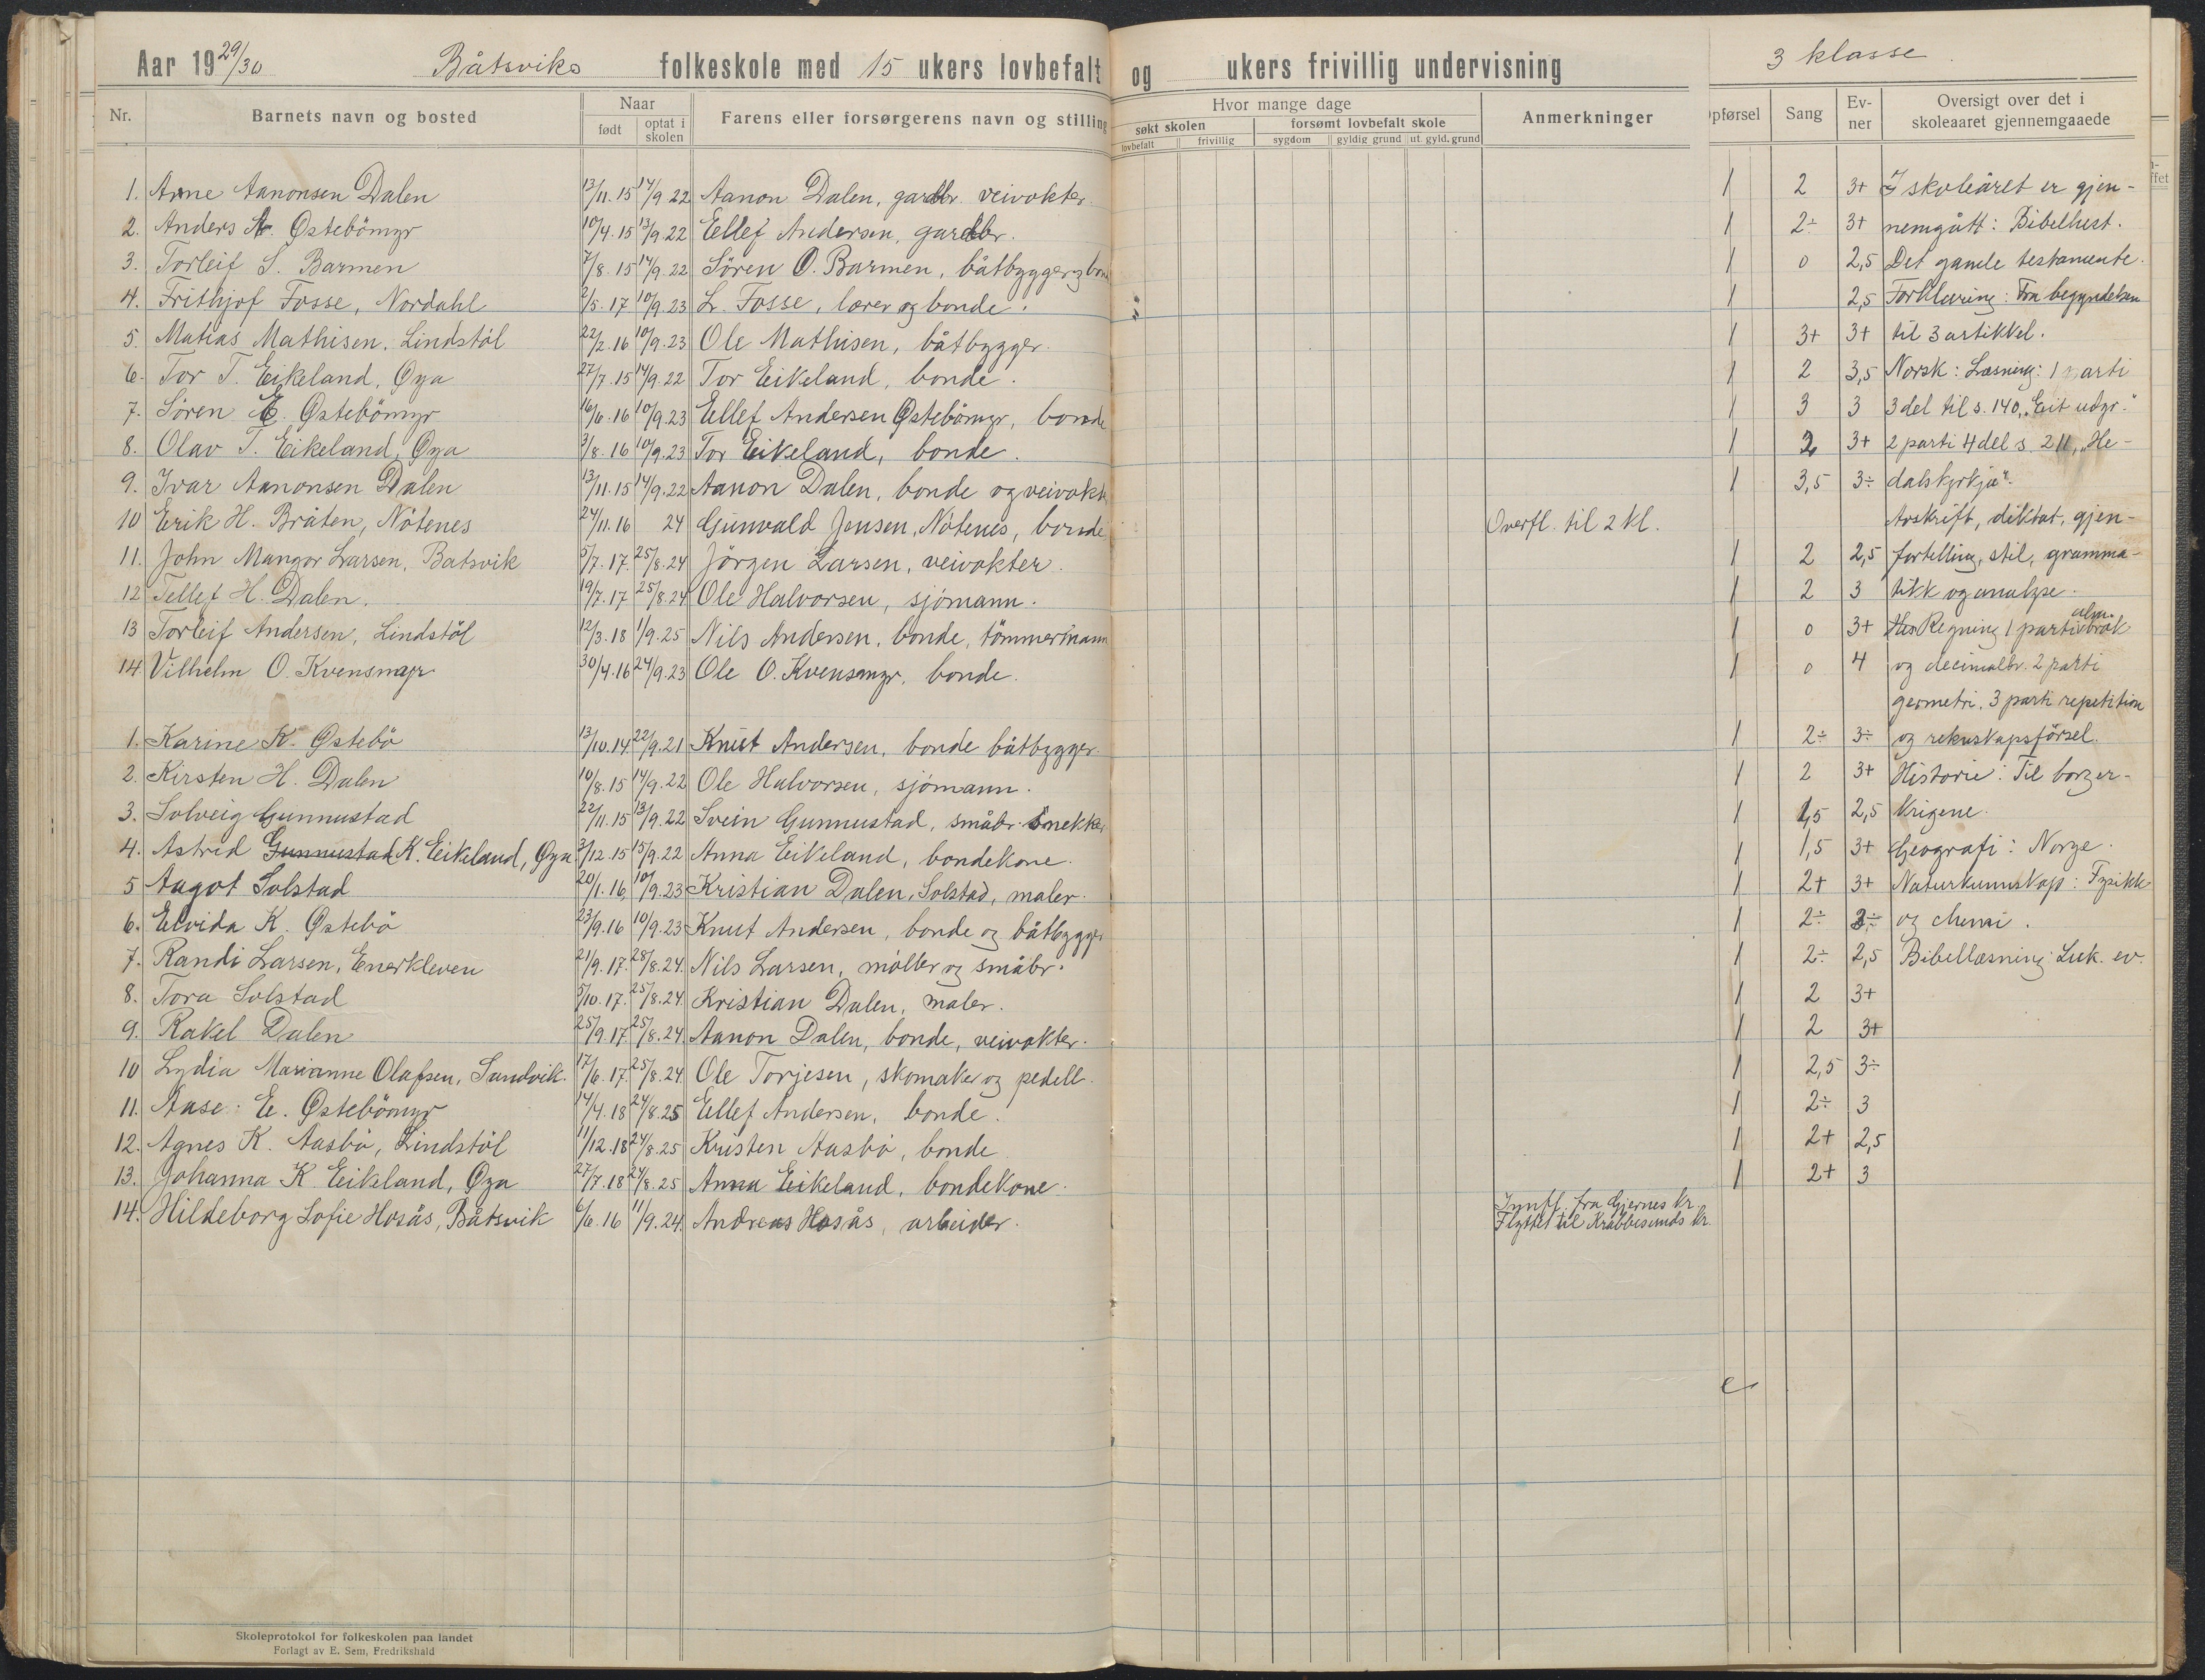 Aar 19 29/30 Båtsviks folkeskole med 15 ukers lovbefalt og ukers frivillig undervisning 3 klasse
Nr. Barnets navn og bosted Naar født optat i skolen Farens eller forsørgerens navn og stilling Hvor mange dage søkt skolen lovbefalt frivillig forsømt lovbefalt skole sygdom gyldig grund ut. gyld. grund Anmerkninger Opførsel Sang Ev-ner Oversigt over det i skoleaaret gjennemgaaede
1. Arne Aanonsen Dalen 13/11.15 14/9 22 Aanon Dalen, gardbr. veivokter 1 2 3+ I skoleåret er gjen-
2. Anders A. Østebömyr 10/4.15 13/9.22 Eellef Andersen, gardbr. 1 2÷ 3+ nemgått: Bibelhist.
3. Torleif S. Barmen 7/8.15 14/9.22 Sören O. Barmen, båtbygger og bon 1 0 2,5 Det gamle testamente.
4. Frithjof Fosse, Nordahl 2/5.17 10/9.23 L. Fosse, lærer og bonde. 1 2,5 Forklaring: Fra begyndelsen
5. Matias Mathisen. Lindstöl 22/2.16 10/9.23 Ole Mathisen, båtbygger. 1 3+ 3+ til 3 artikkel.
6. Tor T. Eikeland, Øya 27/7.15 14/9.22 Tor Eikeland, bonde. 1 2 3,5 Norsk: Læsning: 1 parti
7. Sören E. Østebömyr 16/6.16 10/9.23 Ellef Andersen Østebömyr, bonde 1 3 3 3 del til s. 140,
8. Olav T. Eikeland, Øya 3/8.16 10/9.23 Tor Eikeland, bonde. 1 2 3+ 2 parti 4 del s. 211, „He-
9. Ivar Aanonsen Dalen 13/11.15 14/9.22 Aanon Dalen, bonde og veivokt 1 3,5 3÷ dalskyrkja".
10 Erik H. Bråten, Nötenes 24/11.16 24 Gunvald Jensen, Nötenes, bonde Overfl. til 2 kl. Avskrift, diktat, gjen-
11. John Mangor Larsen, Batsvik 5/7.17. 25/8.24 Jörgen Larsen, veivokter. 1 2 2,5 fortelling, stil, gramma-
12 Tellef H. Dalen. 19/7.17 25/8.24 Ole Halvorsen, sjömann. 1 2 3 tikk og analyse.
13 Torleif Andersen, Lindstöl 12/3.18 1/9.25 Nils Andersen, bonde, tömmermann 1 0 3+ Regning 1 parti alm. brök
14 Vilhelm O. Kvensmyr 30/4.16 24/9.23 Ole O. Kvensmyr, bonde. 1 0 4 og decimalbr. 2 parti
geometri. 3 parti repetition
1. Karine K. Østebö 13/10.14. 22/9.21 Knut Andersen, bonde båtbygger 1 2÷ 3÷ og rekneskapsförsel.
2. Kirsten H. Dalen 10/8.15 14/9.22 Ole Halvorsen, sjömann. 1 2 3+ Historie: Til borger-
3. Solveig Gunnustad 22/11.15 13/9.22 Svein Gunnustad, småbr. Snekker 1 1,5 2,5 krigene.
4. Astrid Gunnustad K. Eikeland, Øya 3/12.15 15/9.22 Anna Eikeland, bondekone. 1 1,5 3+ Geografi: Norge.
5 Aagot Solstad 20/1.16, 10/9.23 Kristian Dalen, Solstad, maler. 1 2+ 3+ Naturkunnskap: Fysikk
6. Elvida K. Østebö 23/9.16 10/9.23 Knut Andersen, bonde og båtbygger 1 2÷ 3÷ og chemi.
7. Randi Larsen, Enerkleven 21/9.17. 28/8.24. Nils Larsen, möller og småbr. 1 2÷ 2,5 Bibellæsning: Luk. ev.
8. Tora Solstad 5/10.17. 25/8.24. Kristian Dalen, maler. 1 2 3+
9. Rakel Dalen 25/9.17. 25/8.24. Aanon Dalen, bonde, veivokter. 1 2 3+
10 Lydia Marianne Olafsen, Sandvik. 17/6.17. 25/8.24 Ole Torjesen, skomaker og pedell. 1 2,5 3÷
11. Aase. E. Østebömyr 14/4.18 24/8.25 Ellef Andersen, bonde. 1 2÷ 3
12. Agnes K. Aasbö, Lindstöl 11/12.18 24/8.25 Kristen Aasbö, bonde 1 2+ 2,5
13. Johanna K. Eikeland, Øya 27/7.18 24/8.25 Anna Eikeland, bondekone. 1 2+ 3
14. Hildeborg Sofie Hosås, Båtsvik 6/6.16 11/9.24. Andreas Hosås, arbeider. Innfl. fra Gjernes kr.
Flyttet til Krabbesunds kr.
Skoleprotokol for folkeskolen paa landet
Forlagt av E. Sem, Fredrikshald